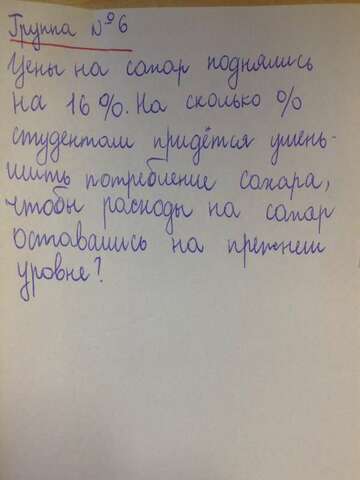 Группа №6
Цены на сахар поднялись
на 16%. На сколько %
студентам придётся умень-
шить потребление сахара,
чтобы расходы на сахар
оставались на прежнем
уровне?